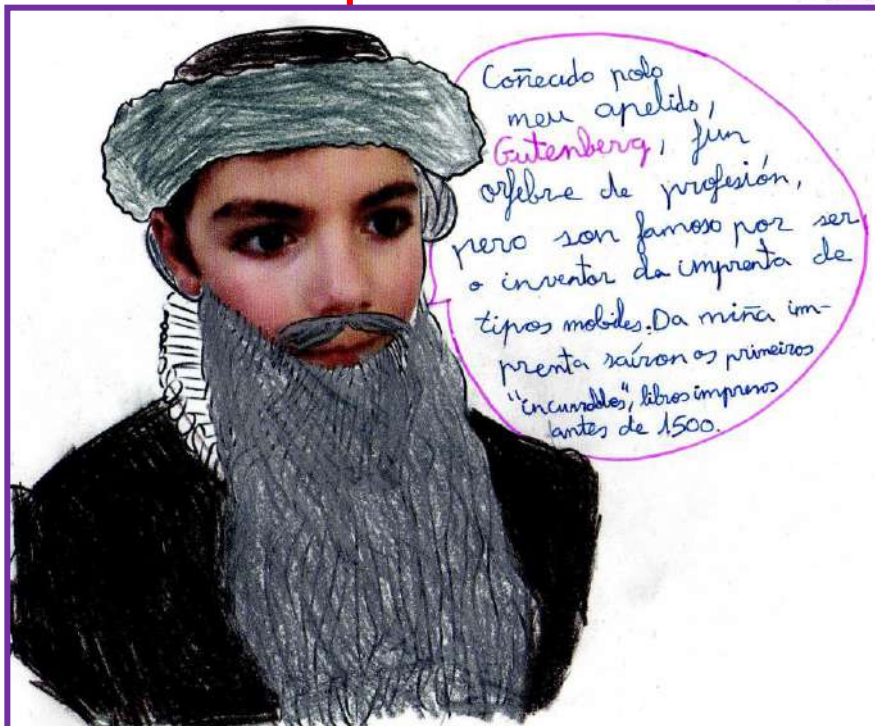 Coñecido polo
meu apelido,
Gutenberg, fun
orfebre de profesión,
pero son famoso por ser
o inventor da imprenta de
tipos mobiles. Da miña im-
prenta saíron os primeiros
"incunables", libros impresos
antes de 1500.